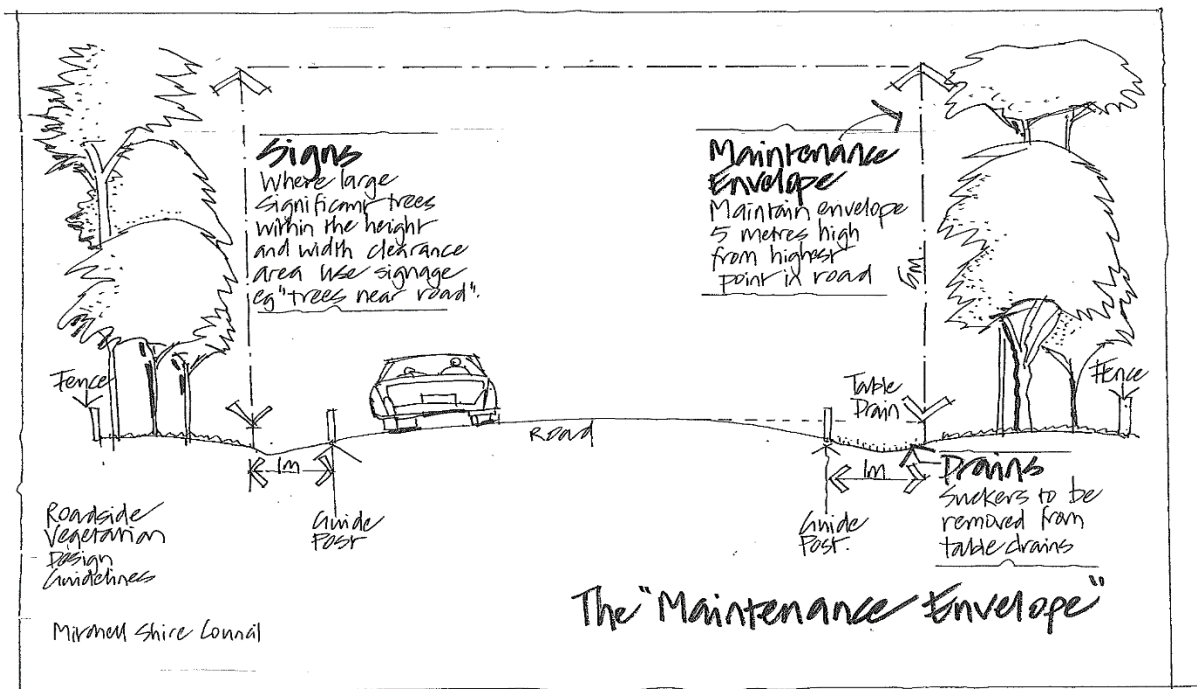 Signs
Where large
significant trees
within the height
and width clearance
area use signage
eg "trees near road".
Maintenance
Envelope
Maintain envelope
5 metres high
from highest
point in road
5m
Fence
Table
Drain
Fence
Road
1m
1m
Guide
Post
Guide
Post.
Drains
Suckers to be
removed from
table drains
Roadside
Vegetation
Design
Guidelines
Mitchell Shire Council
The "Maintenance Envelope"